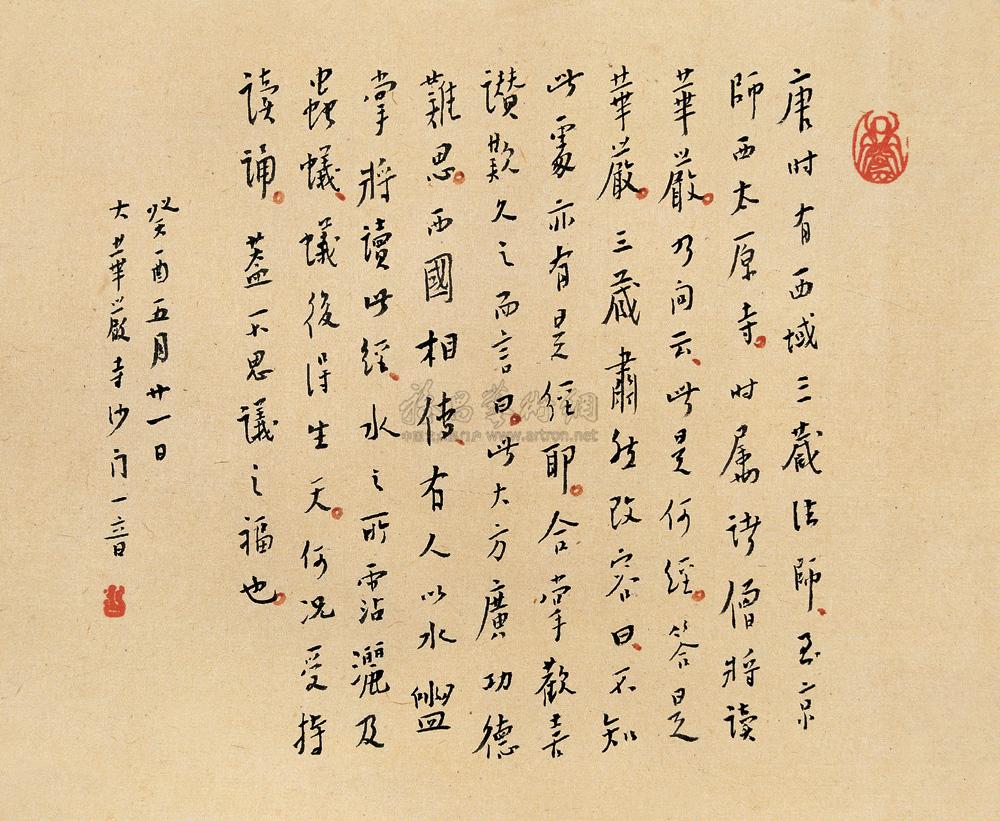 唐时有西域三藏法师、至京
师西太原寺。时属诸僧将读
華嚴。乃问云、此是何经。答是
華嚴。三藏肅然改容曰、不知
此處亦有是經耶。合掌歡喜
讃歎久之而言曰。此大方廣功德
難思。西國相传、有人以水盥
掌将讀此经、水之所霑灑及
蟲蟻、蟻後得生天。何况受持
读诵。蓋不思議之福也。
癸酉五月廿一日
大華嚴寺沙门一音
www.artron.net